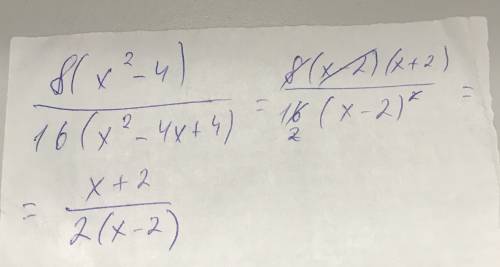 8(x²-4) / 16(x²-4x+4) = 8(x-2)(x+2) / 16 2 (x-2)² =
= x+2 / 2(x-2)